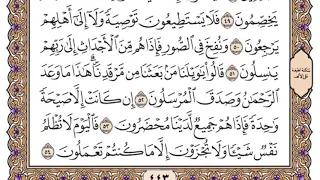 يَخِصِّمُونَ ٤٩ فَلَا يَسْتَطِيعُونَ تَوْصِيَةً وَلَآ إِلَىٰٓ أَهْلِهِمْ
يَرْجِعُونَ ٥٠ وَنُفِخَ فِى ٱلصُّورِ فَإِذَا هُم مِّنَ ٱلْأَجْدَاثِ إِلَىٰ رَبِّهِمْ
يَنسِلُونَ ٥١ قَالُوا۟ يَٰوَيْلَنَا مَنۢ بَعَثَنَا مِن مَّرْقَدِنَاۜ ۗ هَٰذَا مَا وَعَدَ
ٱلرَّحْمَٰنُ وَصَدَقَ ٱلْمُرْسَلُونَ ٥٢ إِن كَانَتْ إِلَّا صَيْحَةً
وَٰحِدَةً فَإِذَا هُمْ جَمِيعٌ لَّدَيْنَا مُحْضَرُونَ ٥٣ فَٱلْيَوْمَ لَا تُظْلَمُ
نَفْسٌ شَيْـًٔا وَلَا تُجْزَوْنَ إِلَّا مَا كُنتُمْ تَعْمَلُونَ ٥٤
٤٤٣